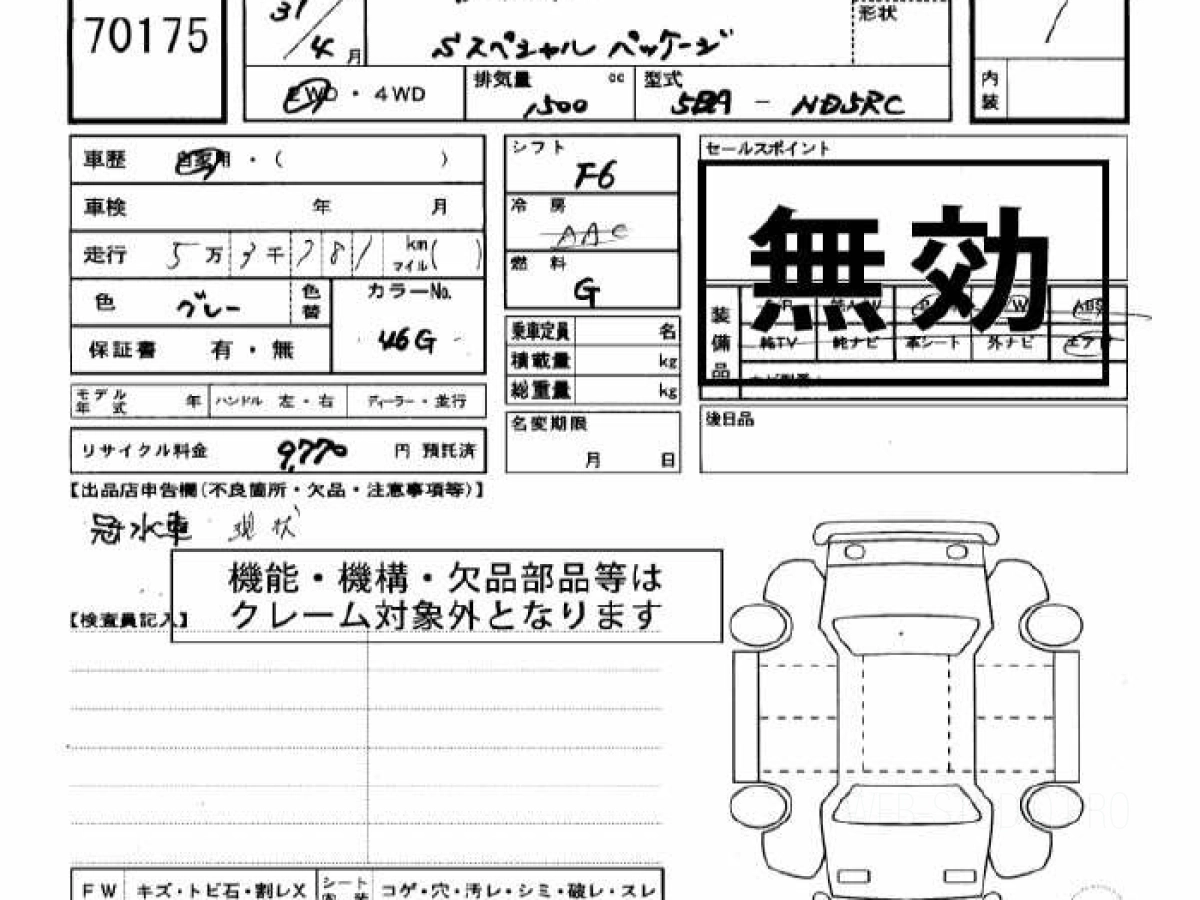 70175
31
4月
Sスペシャル パッケージ
形状
2WD・4WD
排気量 cc
1,500
型式
5BA - ND5RC
内装
車歴 自家用・( )
車検 年 月
走行 5万3千781 km マイル( )
色 グレー 色替
カラーNo.
46G
保証書 有・無
モデル年式 年 ハンドル 左・右 ディーラー・並行
リサイクル料金 9,770 円 預託済
シフト
F6
冷房
AAC
燃料
G
乗車定員 名
積載量 kg
総重量 kg
名変期限
月 日
セールスポイント
無効
装備品
ABS
純TV 純ナビ 本シート 外ナビ エアB
後日品
【出品店申告欄(不良箇所・欠品・注意事項等)】
冠水車 現状
機能・機構・欠品部品等は
クレーム対象外となります
【検査員記入】
FW キズ・トビ石・割レX シート コゲ・穴・汚レ・シミ・破レ・スレ